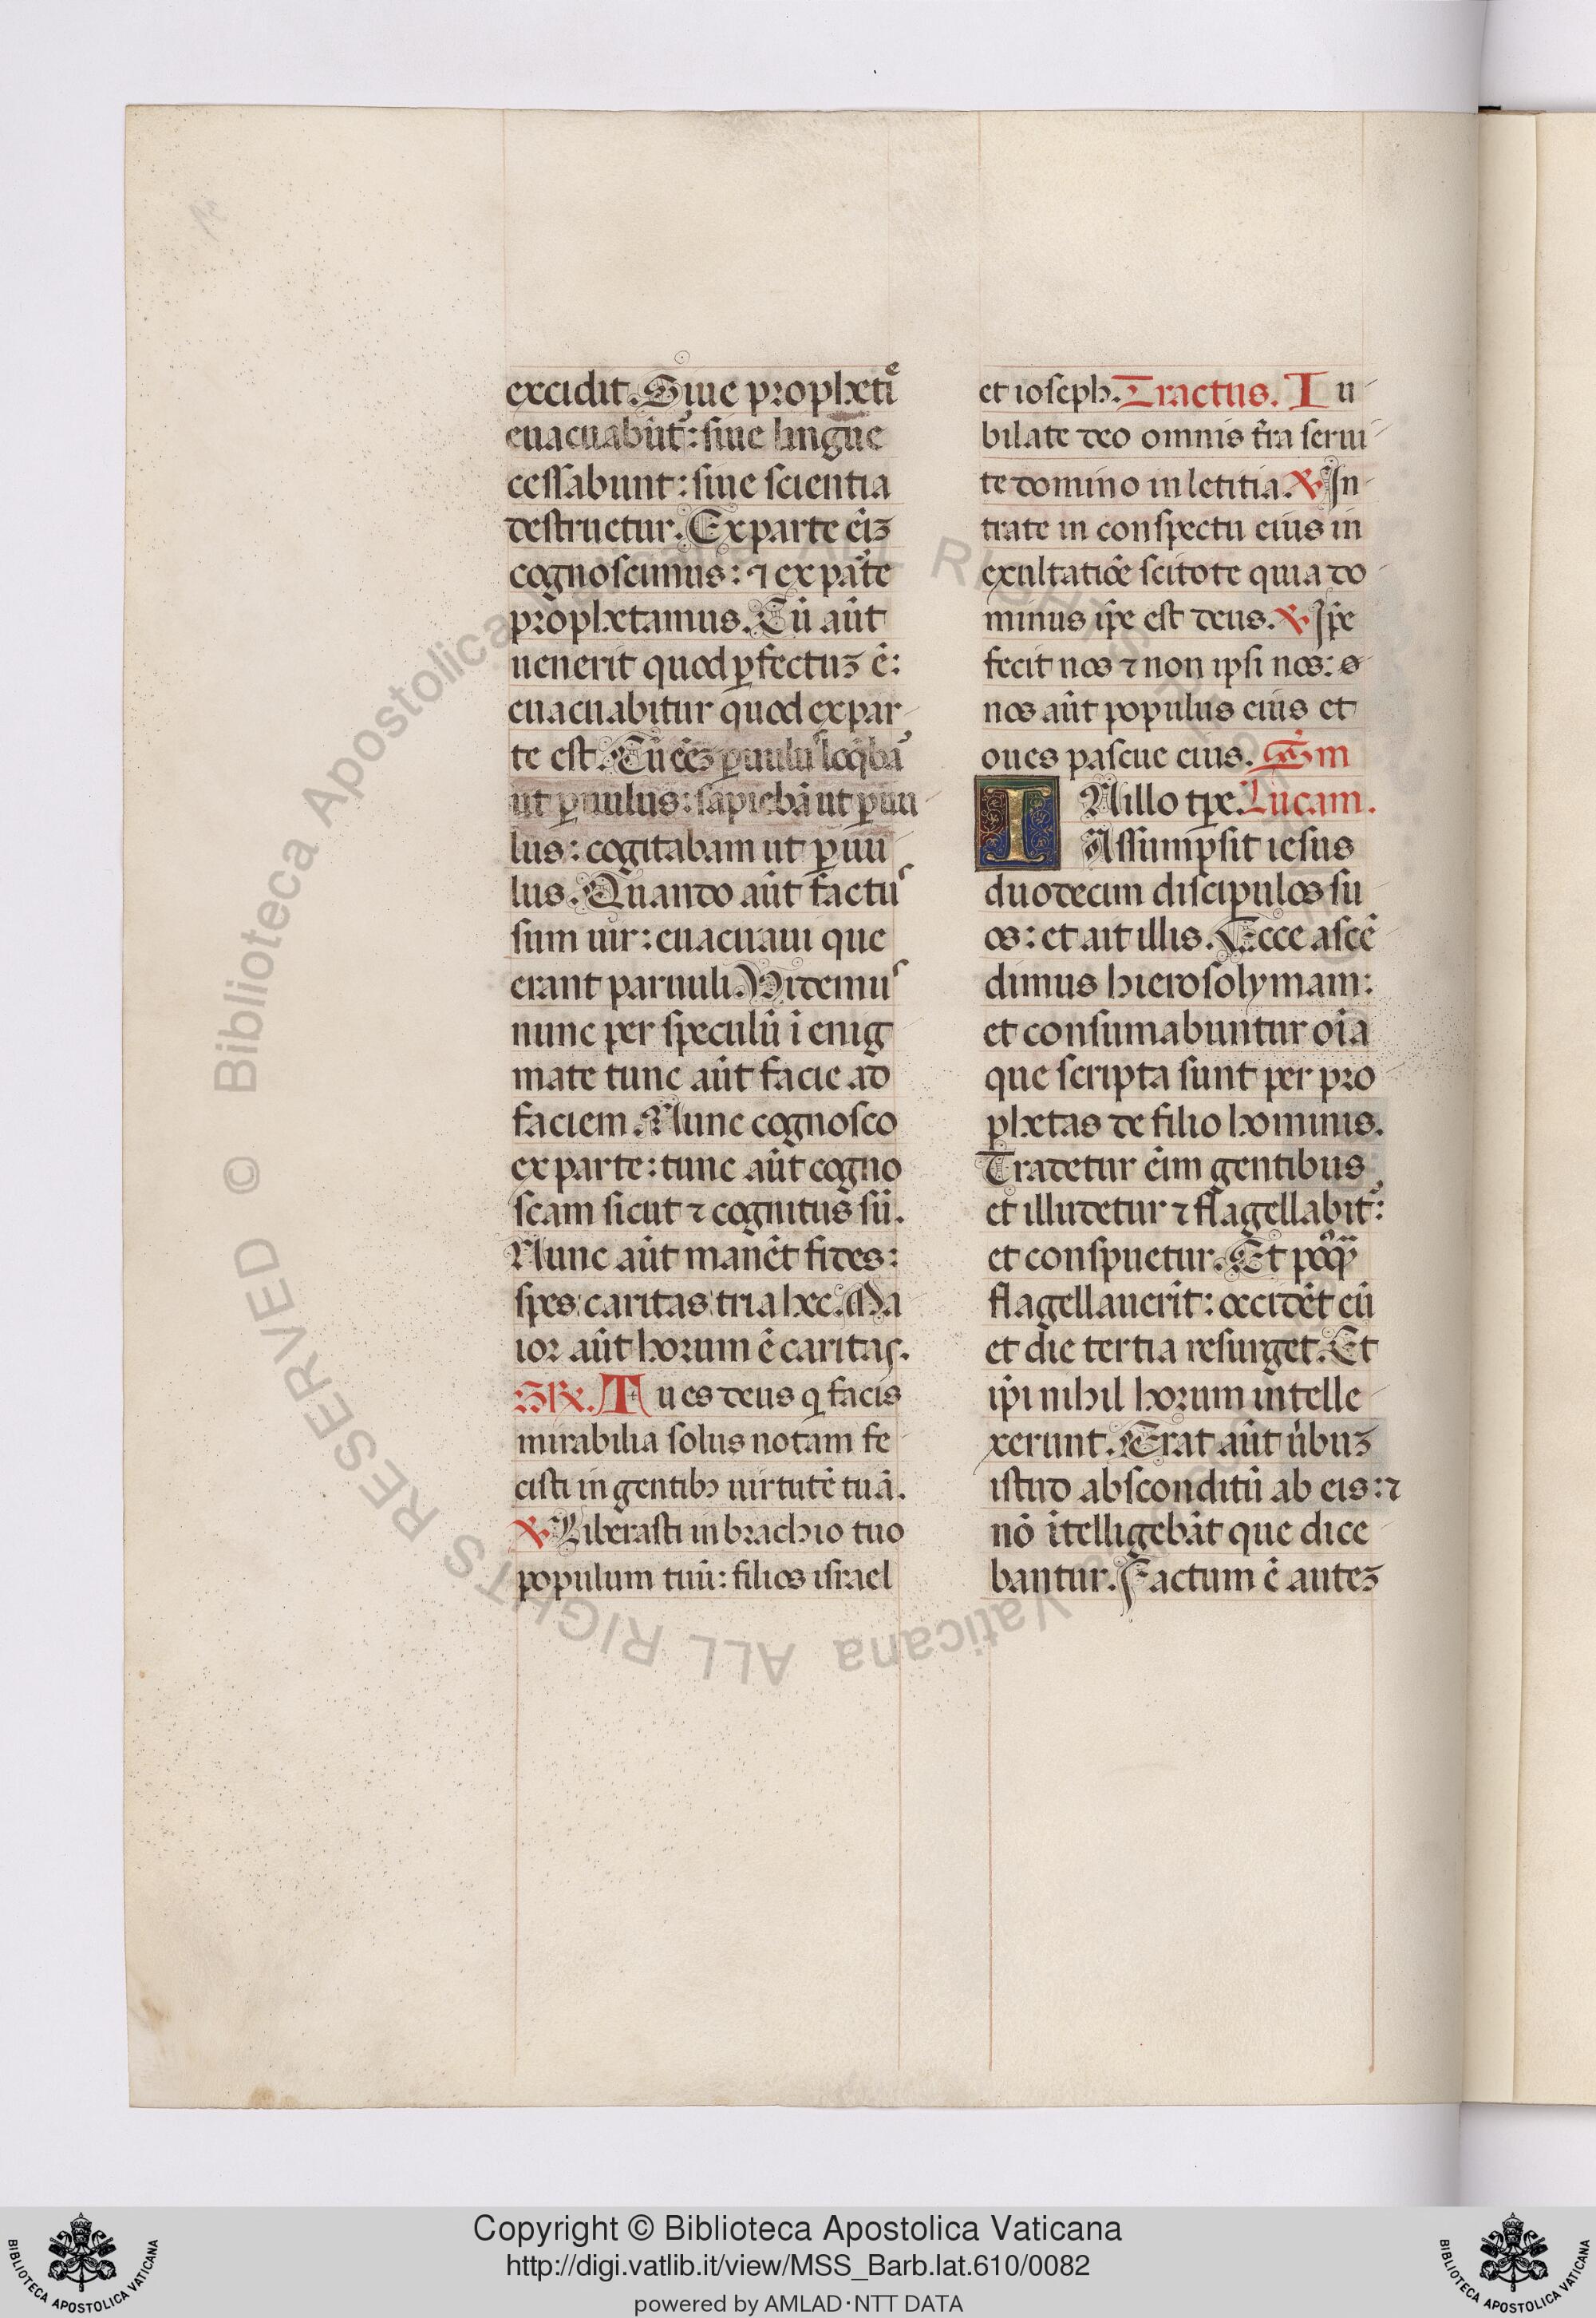 excidit. Siue propheti᷒e
euacuabūt᷒: siue lingue
cessabunt: siue scientia
destruetur. Ex parte ei̅ꝫ
cognoscimus: ⁊ ex pa̅te
prophetamus. Cū aūt
uenerit quod ꝑfectuꝫ ē:
euacuabitur quod ex par
te est. Cū eēꝫ ꝑuulus loq̄ba᷒
ut ꝑuulus: sapiebā ut ꝑuu
lus: cogitabam ut ꝑuu
lus. Quando aūt factus
sum uir: euacuaui que
erant paruuli. Videmus
nunc per speculū ī enig
mate tunc aūt facie ad
faciem. Nunc cognosco
ex parte: tunc aūt cogno
scam sicut ⁊ cognitus sū.
Nunc aūt manēt fides:
spes: caritas: tria hec. Ma
ior aūt horum ē caritas.
GR. Tu es deus q̄ facis
mirabilia solus notam fe
cisti in gentibꝫ uirtutē tuā.
℣. Liberasti in brachio tuo
populum tuū: filios israel
et ioseph. Tractus. Iu
bilate deo omnis t̄ra serui
te domino in letitia. ℣. In
trate in conspectu eius in
exultatiōe scitote quia do
minus ip̄e est deus. ℣. Ip̄e
fecit nos ⁊ non ipsi nos:
nos aūt populus eius et
oues pascue eius. Scd̄m
IN illo tp̄e. Lucam.
Assumpsit iesus
duodecim discipulos su
os: et ait illis. Ecce ascē
dimus hierosolymam:
et consumabuntur oīa
que scripta sunt per pro
phetas de filio hominis.
Tradetur ēim gentibus
et illudetur ⁊ flagellabit᷒:
et conspuetur. Et poꝗ̄
flagellauerīt: occidēt eū
et die tertia resurget. Et
ip̄i nihil horum intelle
xerunt. Erat aūt ūbuꝫ
istud absconditū ab eis: ⁊
nō ītelligebāt que dice
bantur. Factum ē auteꝫ
© Biblioteca Apostolica Vaticana ALL RIGHTS RESERVED
Copyright © Biblioteca Apostolica Vaticana
http://digi.vatlib.it/view/MSS_Barb.lat.610/0082
powered by AMLAD·NTT DATA
BIBLIOTECA APOSTOLICA VATICANA
BIBLIOTECA APOSTOLICA VATICANA